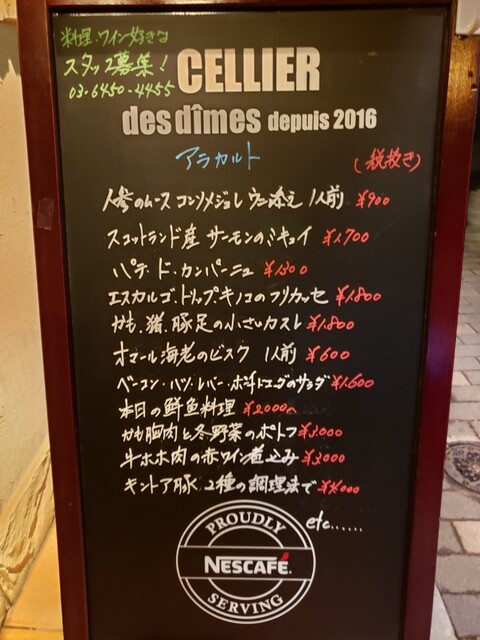 料理・ワイン好きな
スタッフ募集！
03-6450-4455
CELLIER
des dîmes depuis 2016
アラカルト
(税抜き)
人参のムース コンソメジュレ ウニ添え 1人前 ¥900
スコットランド産 サーモンのミキュイ ¥1,700
パテ・ド・カンパーニュ ¥1,300
エスカルゴ、トリップ、キノコのフリカッセ ¥1,800
かも、猪、豚足の小さいカスレ ¥1,800
オマール海老のビスク 1人前 ¥600
ベーコン・ハツ・レバー・ポーチドエッグのサラダ ¥1,600
本日の鮮魚料理 ¥2,000~
かも胸肉と冬野菜のポトフ ¥3,000
牛ホホ肉の赤ワイン煮込み ¥3,000
キントア豚、2種の調理法で ¥4,000
etc......
PROUDLY
NESCAFÉ.
SERVING